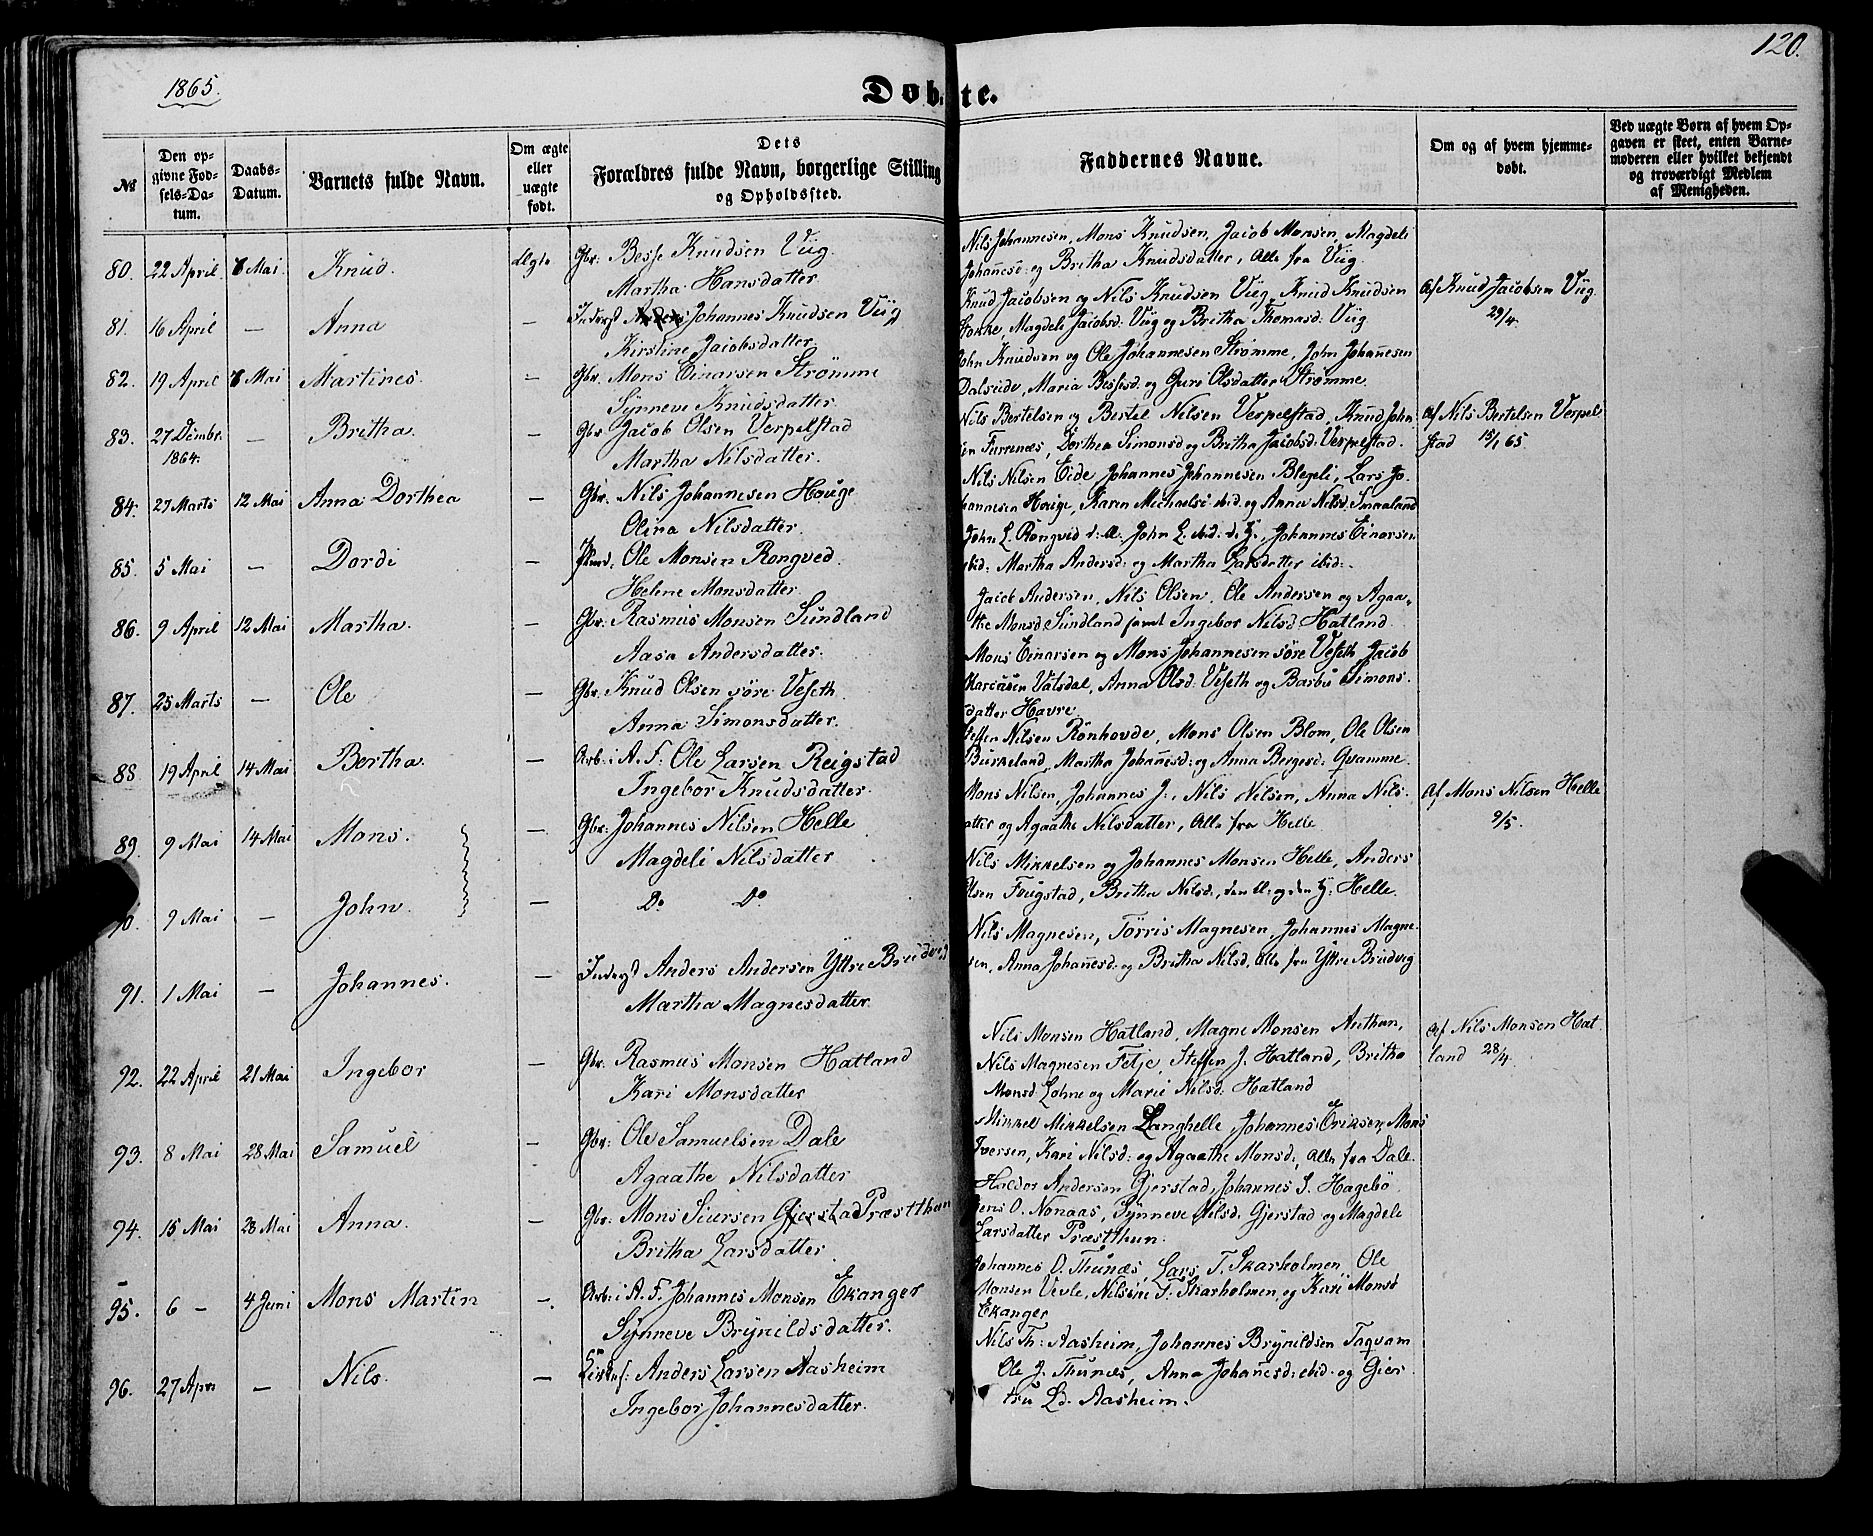 1865.
120.
Døbte.
No
Den opgivne Fødsels-Datum.
Daabs-Datum.
Barnets fulde Navn.
Om ægte eller uægte født.
Dets Forældres fulde Navn, borgerlige Stilling og Opholdssted.
Faddernes Navne.
Om og af hvem hjemmedøbt.
Ved uægte Børn af hvem Opgaven er skeet, enten Barnemoderen eller hvilket bekjendt og troværdigt Medlem af Menigheden.
80. 22 April Mai. Knud. Ægte Gbr. Besse Knudsen Viig.
Martha Hansdatter.
Nils Johannesen, Mons Knudsen, Jacob Monsen, Magdeli
Johanesd: og Britha Knudsdatter, Alle fra Viig.
81. 16 April — Anna — Inderst Johannes Knudsen Viig
Kirstine Jacobsdatter.
Knud Jacobsen og Nils Knudsen Viig, Knud Knudsen
Magdeli Jacobsd: Viig og Britha Thomasd: Viig
Af Knud Jacobsen Viig.
29/4.
82. 19 April Mai Martines. — Gbr. Mons Einarsen Strømme
Synneve Knudsdatter.
John Knudsen og Ole Johannesen Strømme, John Johanesen
Dalseide, Maria Bessesd. og Guri Olsdatter Strømme.
83. 27 Dembr. 1864. — Britha. — Gbr. Jacob Olsen Verpelstad
Martha Nilsdatter.
Nils Bertelsen og Bertel Nilsen Verpelstad, Knud John
sen Furrenæs, Dorthea Simonsd og Britha Jacobsd: Verpelstad.
Af Nils Bertelsen Verpel
stad 15/1 65
84. 27 Marts 12 Mai Anna Dorthea — Gbr. Nils Johannesen Houge
Olina Nilsdatter.
Nils Nilsen Eide Johannes Johannesen Blegeli, Lars Jo
hannesen Houge, Karen Michaelsd ibid. og Anna Nilsd: Smaaland
85. 5 Mai — Dordi — Ole Monsen Rongved.
Helene Monsdatter.
John L. Rongved d: Æ: John L. ibid. d. Y., Johannes Einarsen
ibid: Martha Andersd: og Martha Larsdatter ibid.
86. 9 April 12 Mai Martha. — Gbr. Rasmus Monsen Sundland
Aasa Andersdatter.
Jacob Andersen, Nils Olsen, Ole Andersen og Agaa-
the Monsd. Sundland samt Ingebor Nilsd Hatland.
87. 25 Marts — Ole — Gbr. Knud Olsen søre Veseth.
Anna Simonsdatter.
Mons Einarsen og Mons Johannesen søre Veseth, Jacob
Vatsdal, Anna Olsd. Veseth og Barbu Simons-
datter Havre
88 19 April 14 Mai Bertha — Arb: i A. F: Ole Larsen Reigstad
Ingebor Knudsdatter.
Steffen Nilsen Rønhovde, Mons Olsen Blom, Ole Olsen
Burkeland, Martha Johanesd: og Anna Bergesd: Qvamme.
89. 9 Mai 14 Mai Mons. — Gbr: Johannes Nilsen Helle
Magdeli Nilsdatter
Mons Nilsen, Johannes J., Nils Nilsen, Anna Nils-
datter og Agaathe Nilsdatter, Alle fra Helle
Af Mons Nilsen Helle
9/5.
90. 9 Mai — John. — Do Do
Nils Mikkelsen og Johannes Monsen Helle, Anders
Olsen Fugstad, Britha Nilsd:, den Æ: og den Y: Helle.
91. 1 Mai — Johannes. — Inderst Anders Andersen Yttre Brudvig
Martha Magnesdatter.
Nils Magnesen, Tørris Magnesen, Johannes Magne
sen, Anna Johanesd: og Britha Nilsd, alle fra Yttre Bruvig
92. 22 April 21 Mai Ingebor — Gbr. Rasmus Monsen Hatland
Kari Monsdatter
Nils Monsen Hatland, Magne Monsen Authun,
Nils Magnesen Fetje, Steffen J. Hatland, Britha
Monsd Lohne og Marie Nilsd: Hatland
Af Nils Monsen Hat
land 28/4.
93. 8 Mai 28 Mai Samuel — Gbr: Ole Samuelsen Dale
Agaathe Nilsdatter
Mikkel Mikkelsen Langhelle, Johannes Eriksen, Mons
Iversen, Kari Nilsd: og Agaathe Monsd:, alle fra Dale.
94. 15 Mai 28 Mai Anna. — Gbr: Mons Siursen Gjerstad Præstthun
Britha Larsdatter.
Haldor Andersen Gjerstad, Johannes S. Hagebø
Jens O. Nonaas, Synneve Nilsd. Gjerstad og Magdeli
Larsdatter Præstthun.
95. 6 — 4 Juni Mons Martin —. Arb: i A. F. Johannes Monsen Ekanger
Synneve Brynildsdatter.
Johannes O. Thunæs, Lars T. Skarholmen, Ole
Monsen Vevle, Nilsine T. Skarholmen, og Kari Monsd
Ekanger
96. 27 Apr — Nils. — Anders Larsen Aasheim
Ingebor Johannesdatter.
Nils Th: Aasheim, Johannes Brynildsen Taqvam
Ole J. Thunæs, Anna Johanesd: ibid: og Gjer
tru Ld. Aasheim.